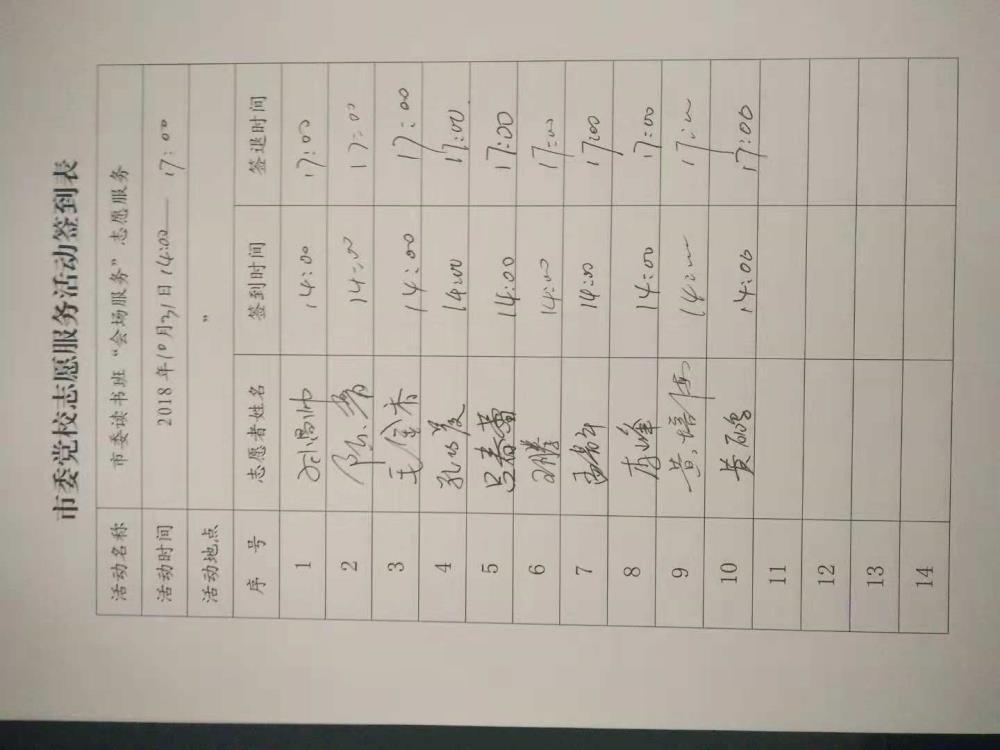 市委党校志愿服务活动签到表
活动名称 市委读书班“会场服务”志愿服务
活动时间 2018年10月31日14:00——17:00
活动地点 〃
序 号 志愿者姓名 签到时间 签退时间
1 14:00 17:00
2 14:00 17:00
3 王金木 14:00 17:00
4 14:00 17:00
5 吕春蕾 14:00 17:00
6 14:00 17:00
7 14:00 17:00
8 李峰 14:00 17:00
9 黄培 14:00 17:00
10 黄 14:00 17:00
11
12
13
14